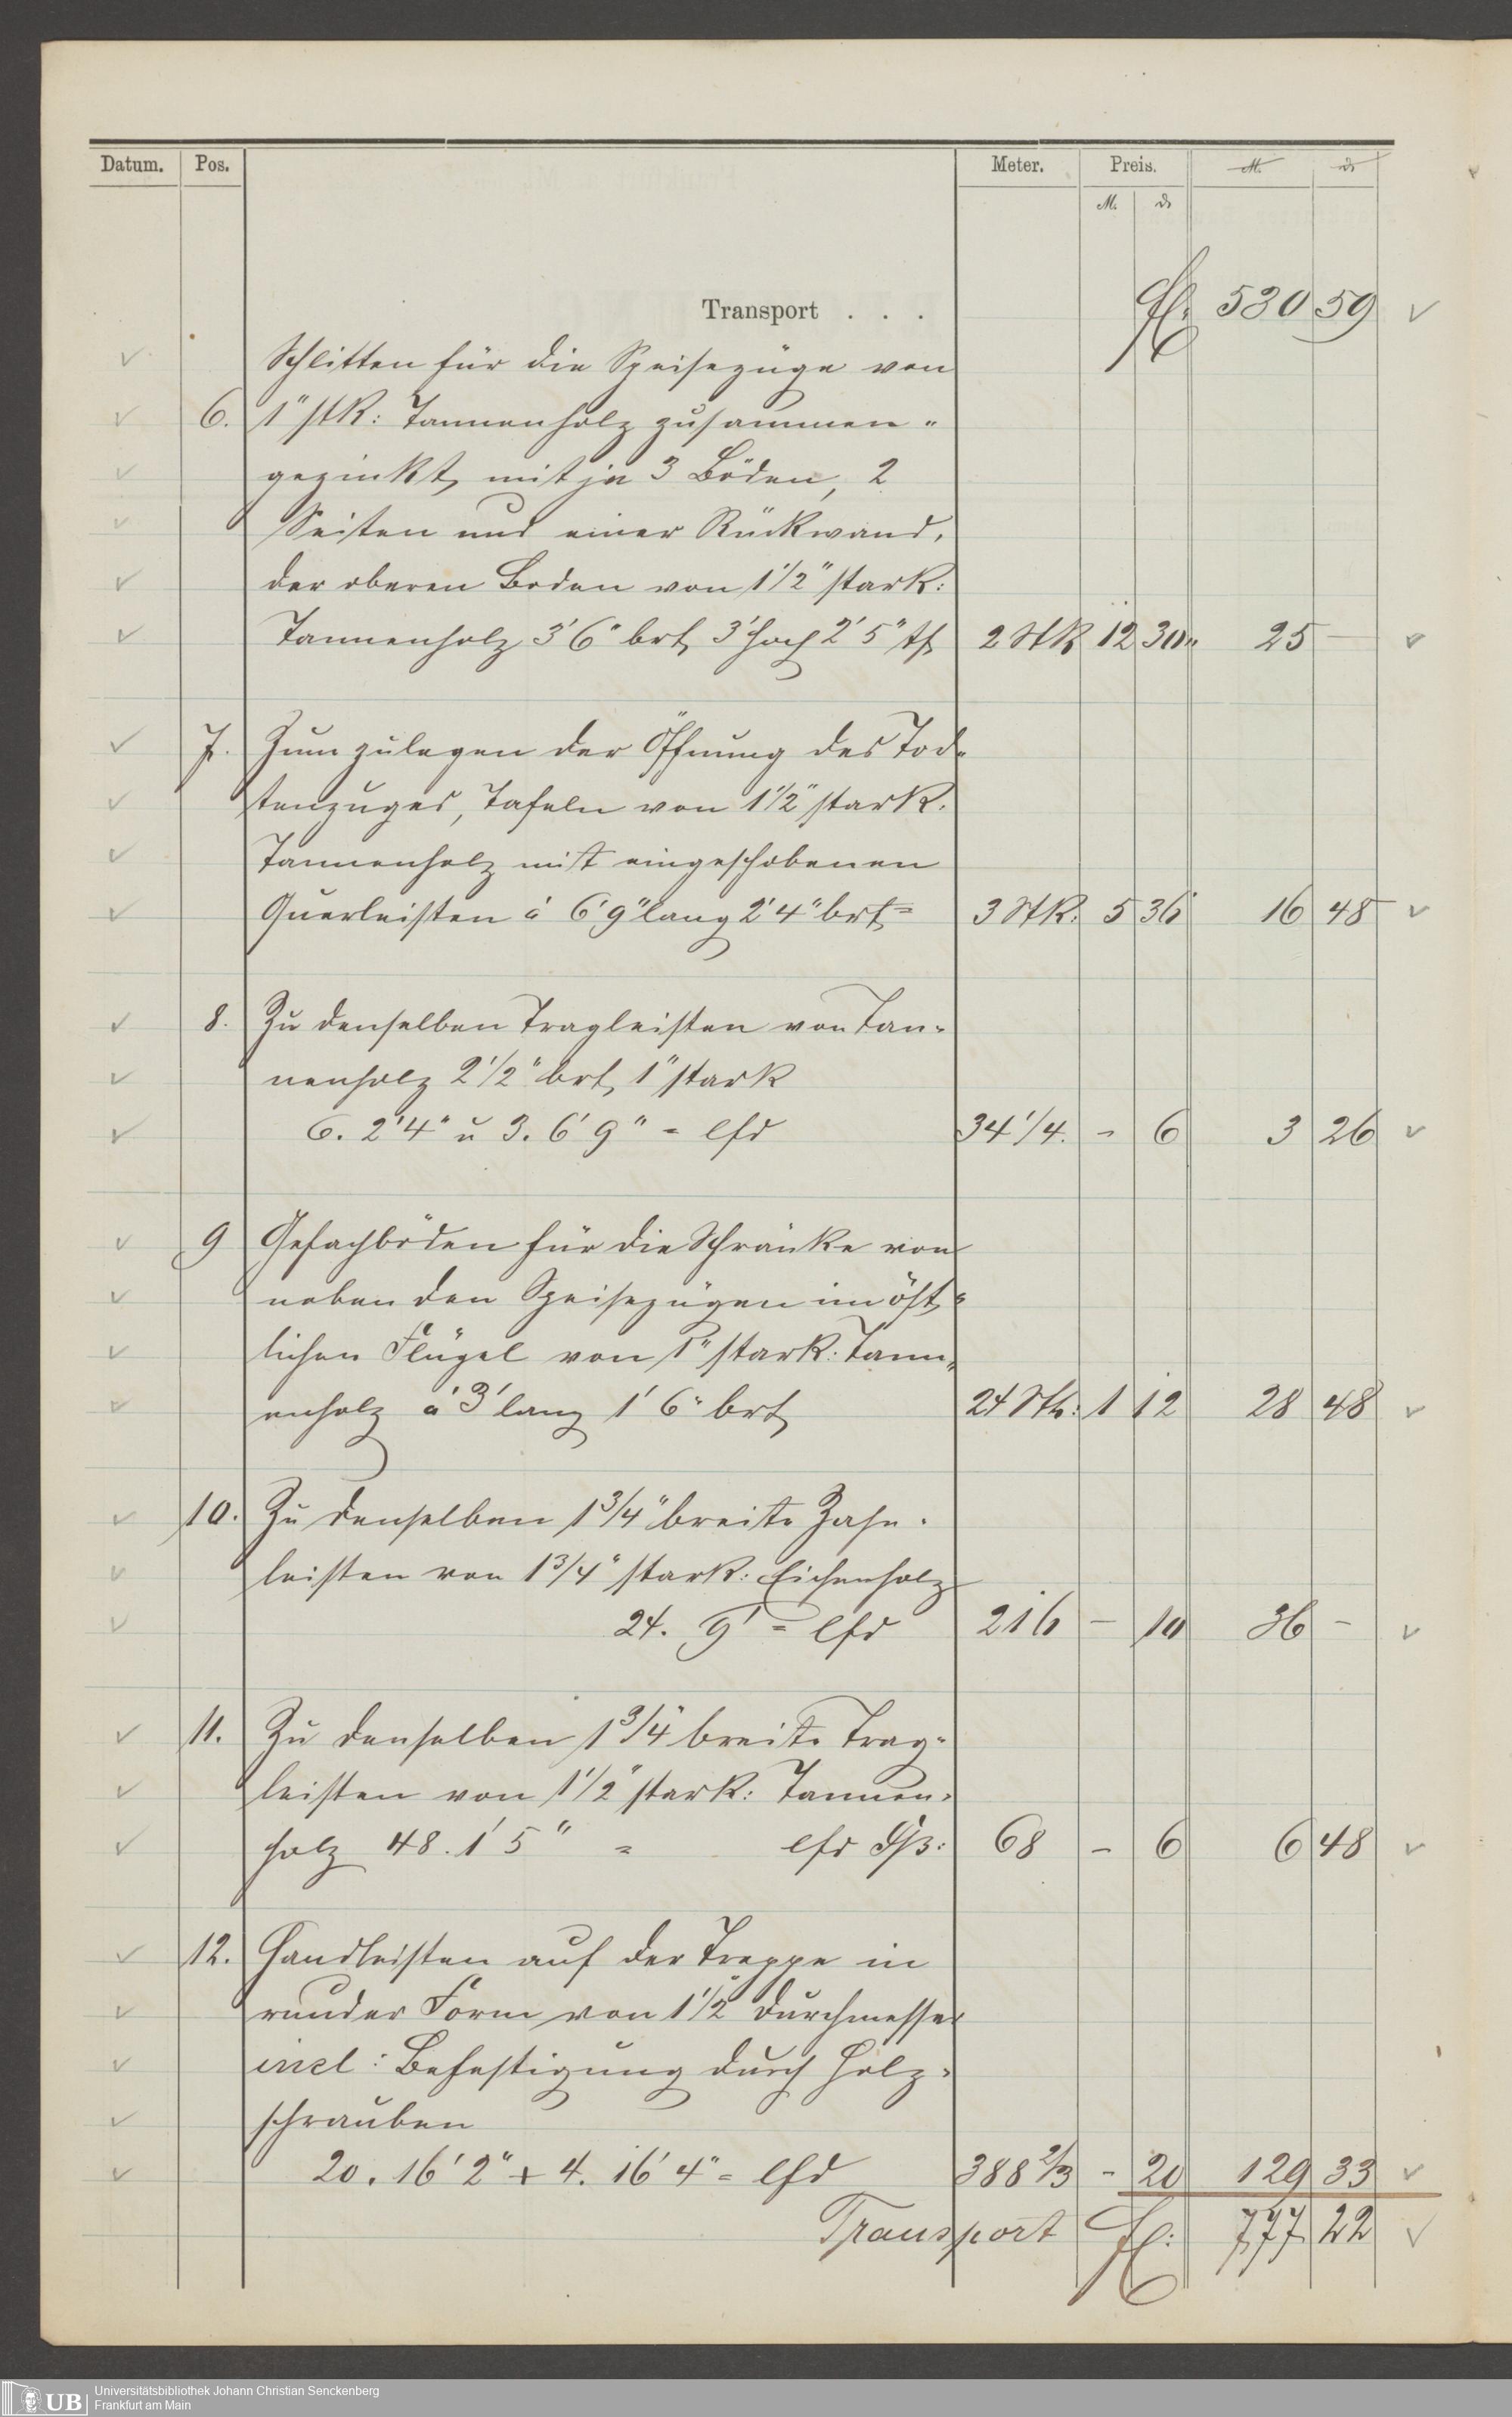 Datum. Pos. Meter. Preis. M. ₰
M. ₰
Transport . . . fl. 530 59
Schlitten für die Speisezüge von
6. 1" stk: Tannenholz zusammen-
gezinkt, mit je 3 Böden, 2
Seiten und einer Rückwand,
der oberen Boden von 1 1/2" stark:
Tannenholz 3' 6" brt, 3' hoch 2' 5" tf 2 Stk 12 30 25 -
7. Zum zulegen der Öffnung des Tod-
tenzuges, Tafeln von 1 1/2" stark.
Tannenholz mit eingeschobenen
Querleisten á 6' 9" lang 2' 4" brt = 3 Stk. 5 36 16 48
8. Zu denselben Tragleisten von Tan-
nenholz 2 1/2" brt, 1" stark
6. 2' 4" u 3. 6' 9" = lfd 34 1/4. - 6 3 26
9 Gefachböden für die Schränke von
neben den Speisezügen im öst-
lichen Flügel von 1" stark: Tann-
enholz á 3' lang 1' 6" brt, 24 Stk: 1 12 28 48
10. Zu denselben 1 3/4" breite Zahn-
leisten von 1 3/4" stark: Eichenholz
24. 9' = lfd 216 - 10 36 -
11. Zu denselben 1 3/4" breite Trag-
leisten von 1 1/2" stark: Tannen-
holz 48. 1' 5" = lfd Fß: 68 - 6 6 48
12. Handleisten auf der Treppe in
runder Form von 1 1/2" Durchmesser
incl: Befestigung durch Holz-
schrauben
20. 16' 2" + 4. 16' 4" = lfd 388 2/3 - 20 129 33
Transport fl: 777 22
UB Universitätsbibliothek Johann Christian Senckenberg
Frankfurt am Main